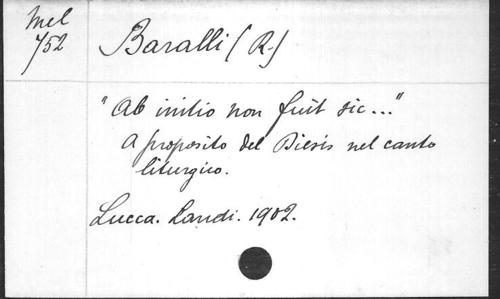 Mel
752
Baralli (R.)
"Ab initio non fuit sic..."
A proposito del Diesis nel canto
liturgico.
Lucca. Landi. 1902.